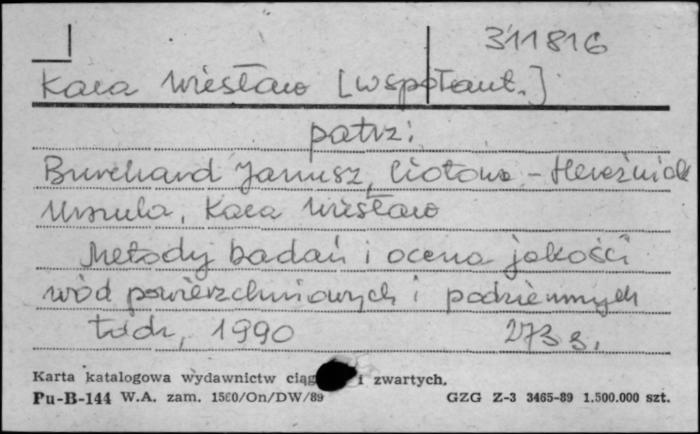 311816
Kaca Wiesław [współaut.]
patrz:
Burchard Janusz, Hereźniak
Urszula, Kaca Wiesław
Metody badań i ocena jakości
wód powierzchniowych i podziemnych
Łódź, 1990 273 s.
Karta katalogowa wydawnictw ciąg i zwartych.
Pu-B-144 W.A. zam. 1560/On/DW/89 GZG Z-3 3465-89 1.500.000 szt.